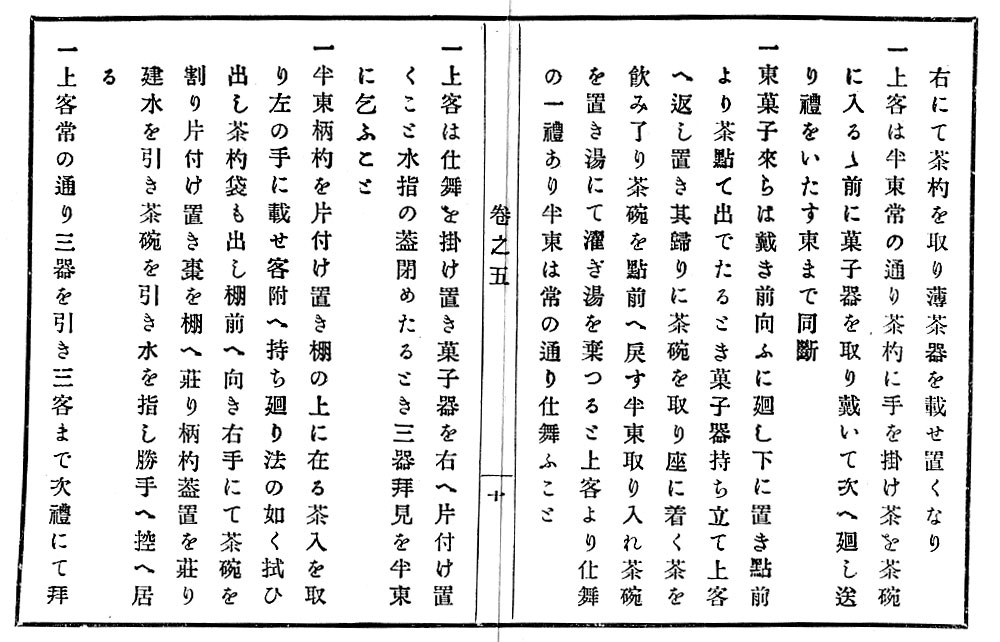 右にて茶杓を取り薄茶器を載せ置くなり
一上客は半東常の通り茶杓に手を掛け茶を茶碗
に入るゝ前に菓子器を取り戴いて次へ廻し送
り禮をいたす東まで同斷
一東菓子來らは戴き前向ふに廻し下に置き點前
より茶點て出でたるとき菓子器持ち立て上客
へ返し置き其歸りに茶碗を取り座に着く茶を
飮み了り茶碗を點前へ戻す半東取り入れ茶碗
を置き湯にて濯ぎ湯を棄つると上客より仕舞
の一禮あり半東は常の通り仕舞ふこと
卷之五
十
一上客は仕舞を掛け置き菓子器を右へ片付け置
くこと水指の葢閉めたるとき三器拜見を半東
に乞ふこと
一半東柄杓を片付け置き棚の上に在る茶入を取
り左の手に載せ客附へ持ち廻り法の如く拭ひ
出し茶杓袋も出し棚前へ向き右手にて茶碗を
割り片付け置き棗を棚へ莊り柄杓葢置を莊り
建水を引き茶碗を引き水を指し勝手へ控へ居
る
一上客常の通り三器を引き三客まで次禮にて拜